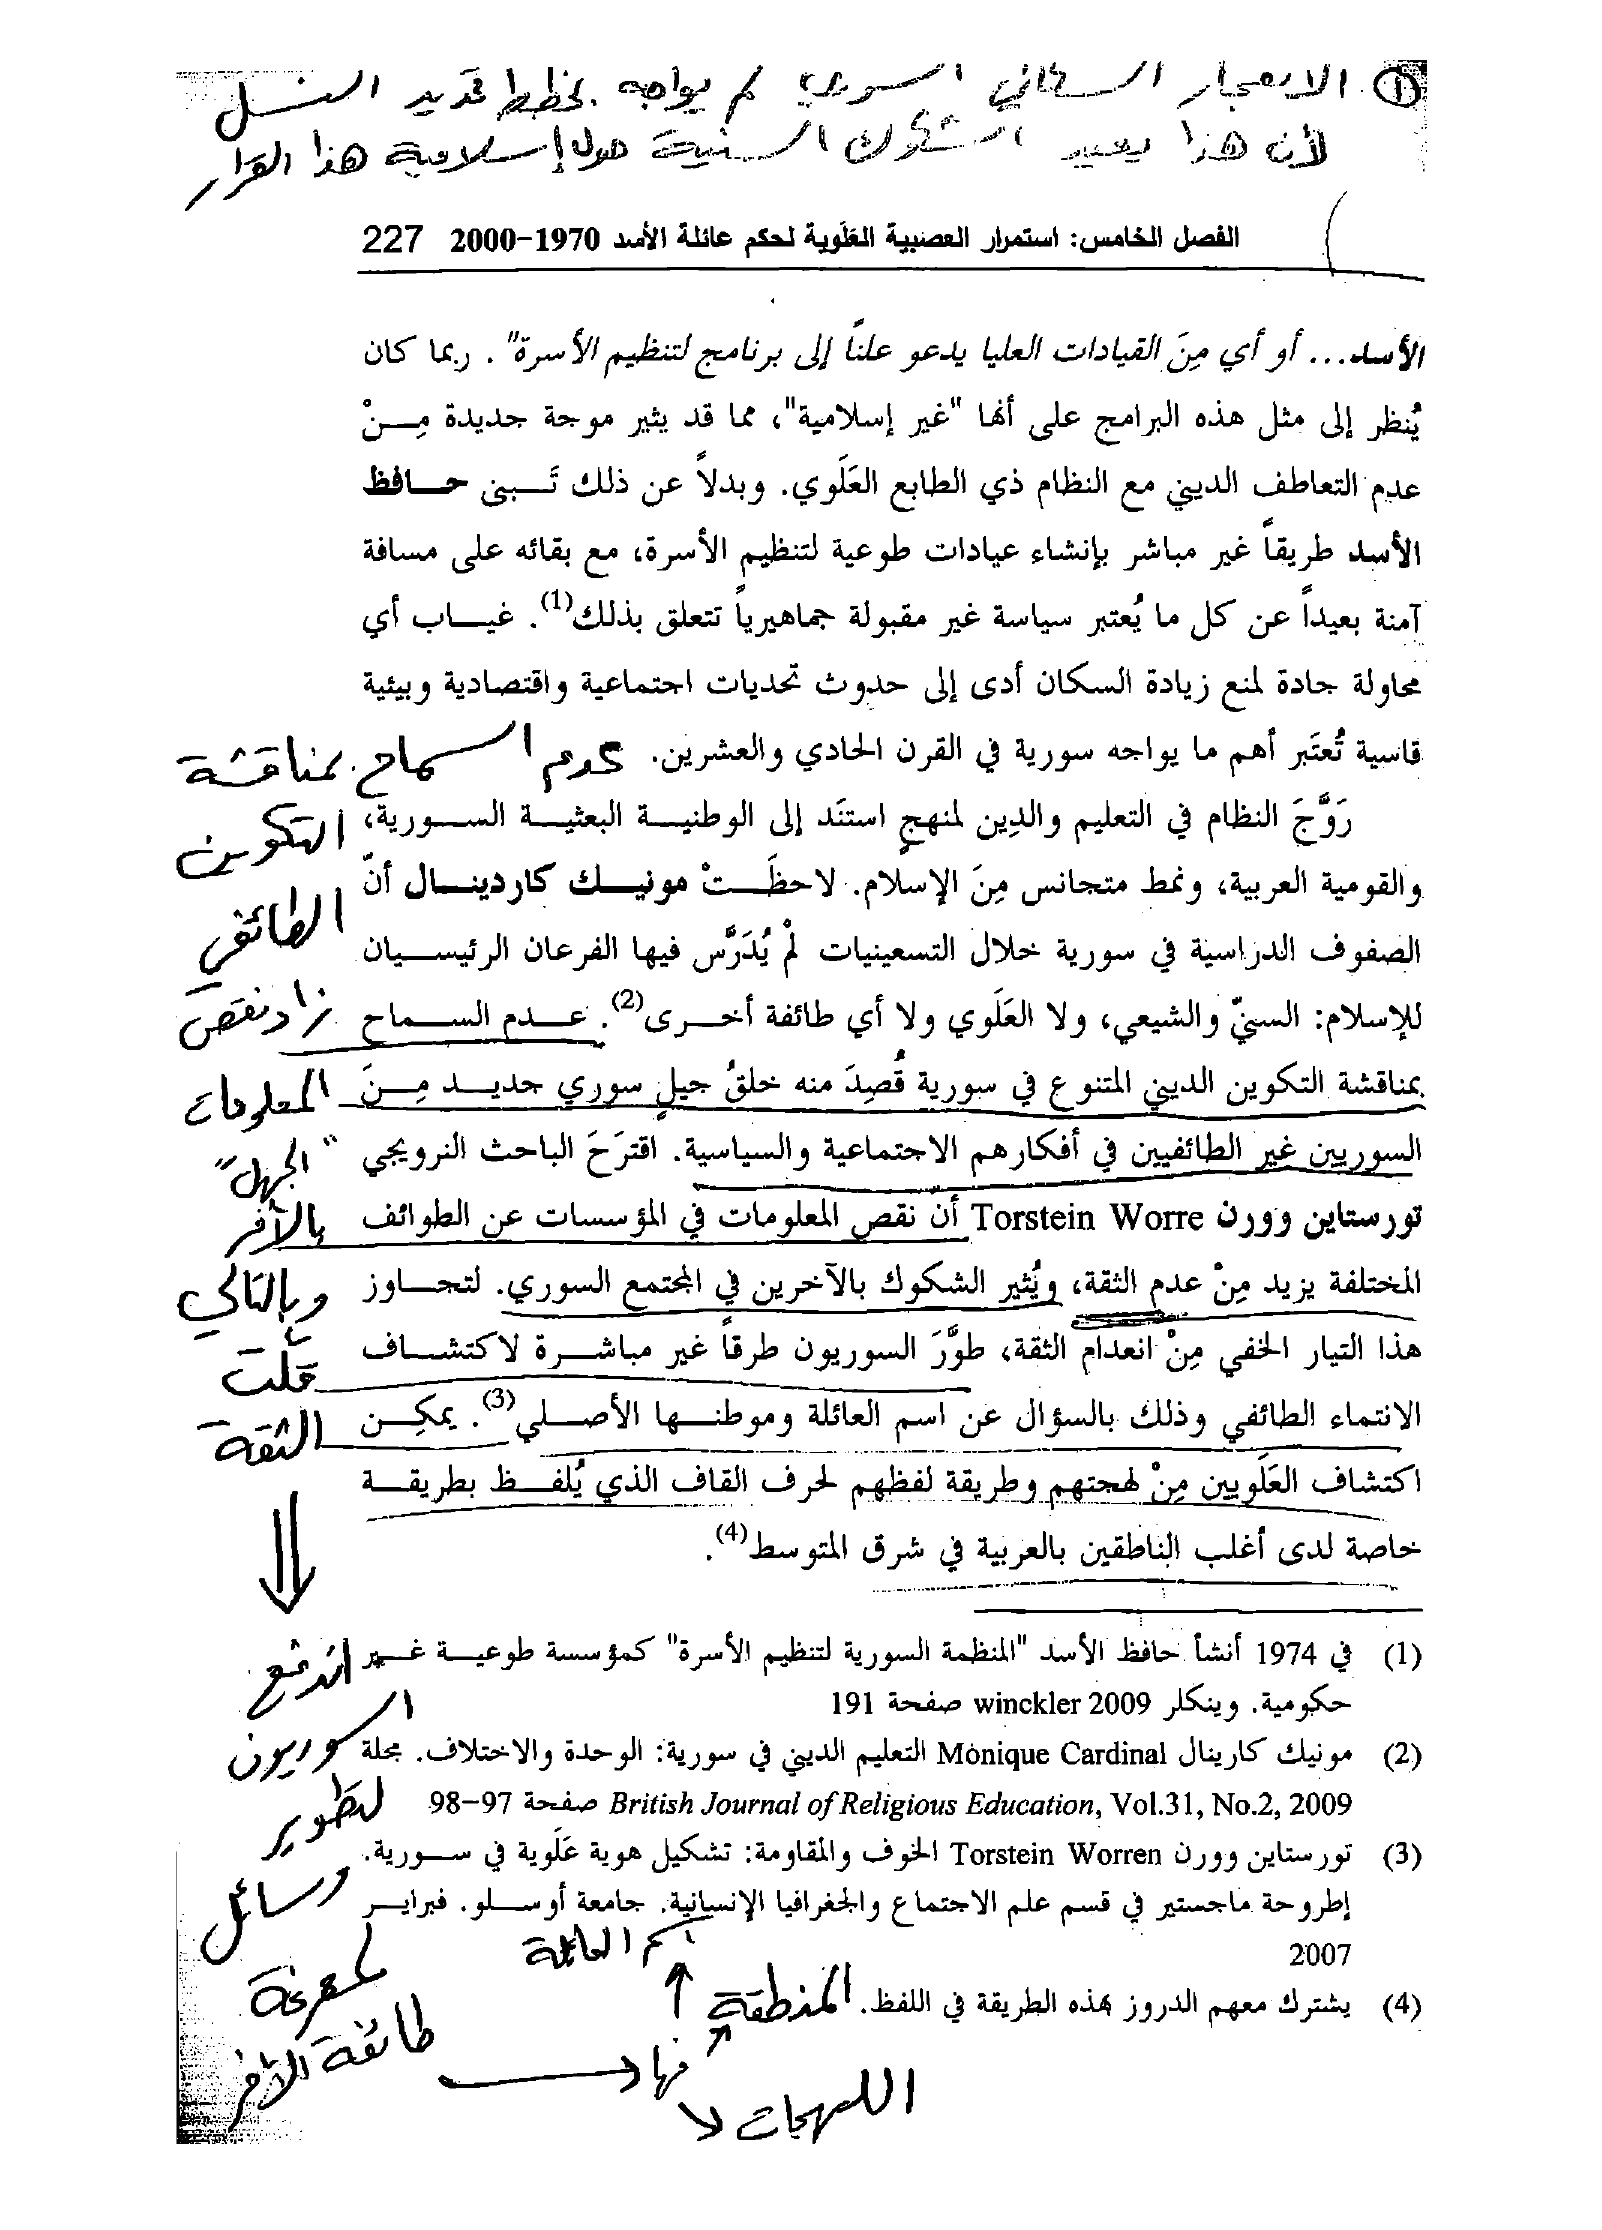 ① الانفجار السكاني السوري لم يواجه بخطط تحديد النسل
لأن هذا يعيد الشكوك السنية حول إسلامية هذا القرار
الفصل الخامس: استمرار العصبية العَلَوية لحكم عائلة الأسد 1970-2000 227
الأسد... أو أي مِنَ القيادات العليا يدعو علناً إلى برنامج لتنظيم الأسرة". ربما كان
يُنظر إلى مثل هذه البرامج على أنها "غير إسلامية"، مما قد يثير موجة جديدة مِــنْ
عدم التعاطف الديني مع النظام ذي الطابع العَلَوي. وبدلاً عن ذلك تَــبنى حــافظ
الأسد طريقاً غير مباشر بإنشاء عيادات طوعية لتنظيم الأسرة، مع بقائه على مسافة
آمنة بعيداً عن كل ما يُعتبر سياسة غير مقبولة جماهيرياً تتعلق بذلك(1). غيــاب أي
محاولة جادة لمنع زيادة السكان أدى إلى حدوث تحديات اجتماعية واقتصادية وبيئية
قاسية تُعتَبر أهم ما يواجه سورية في القرن الحادي والعشرين.
رَوَّجَ النظام في التعليم والدِين لمنهجٍ استنَد إلى الوطنيــة البعثيــة الســورية،
والقومية العربية، ونمط متجانس مِنَ الإسلام. لاحظَــتْ مونيــك كاردينــال أنّ
الصفوف الدراسية في سورية خلال التسعينيات لمْ يُدَرَّس فيها الفرعان الرئيســيان
للإسلام: السنيّ والشيعي، ولا العَلَوي ولا أي طائفة أخــرى(2). عــدم الســماح
بمناقشة التكوين الديني المتنوع في سورية قُصِدَ منه خلقُ جيلٍ سوري جديــد مِــنَ
السوريين غير الطائفيين في أفكارهم الاجتماعية والسياسية. اقترَحَ الباحث النرويجي
تورستاين وورن Torstein Worre أنّ نقص المعلومات في المؤسسات عن الطوائف
المختلفة يزيد مِنْ عدم الثقة، ويُثير الشكوك بالآخرين في المجتمع السوري. لتجــاوز
هذا التيار الخفي مِنْ انعدام الثقة، طوَّرَ السوريون طرقاً غير مباشــرة لاكتشــاف
الانتماء الطائفي وذلك بالسؤال عن اسم العائلة وموطنــها الأصــلي(3). يمكِــن
اكتشاف العَلَويين مِنْ لهجتهم وطريقة لفظهم لحرف القاف الذي يُلفــظ بطريقــة
خاصة لدى أغلب الناطقين بالعربية في شرق المتوسط(4).
عدم السماح بمناقشة
التكوين
الطائفي
زاد نقص
المعلومات
"الجهل"
بالآخر
وبالتالي
قلت
الثقة
اندفع
السوريون
لتطوير
وسائل
لمعرفة
طائفة الآخر
(1) في 1974 أنشأ حافظ الأسد "المنظمة السورية لتنظيم الأسرة" كمؤسسة طوعيــة غــير
حكومية. وينكلر winckler 2009 صفحة 191
(2) مونيك كارينال Monique Cardinal التعليم الديني في سورية: الوحدة والاختلاف. مجلة
British Journal of Religious Education, Vol.31, No.2, 2009 صفحة 97-98
(3) تورستاين وورن Torstein Worren الخوف والمقاومة: تشكيل هوية عَلَوية في ســورية.
إطروحة ماجستير في قسم علم الاجتماع والجغرافيا الإنسانية. جامعة أوســلو. فبرايــر
2007
(4) يشترك معهم الدروز بهذه الطريقة في اللفظ.
اسم العائلة
المنطقة
اللهجات